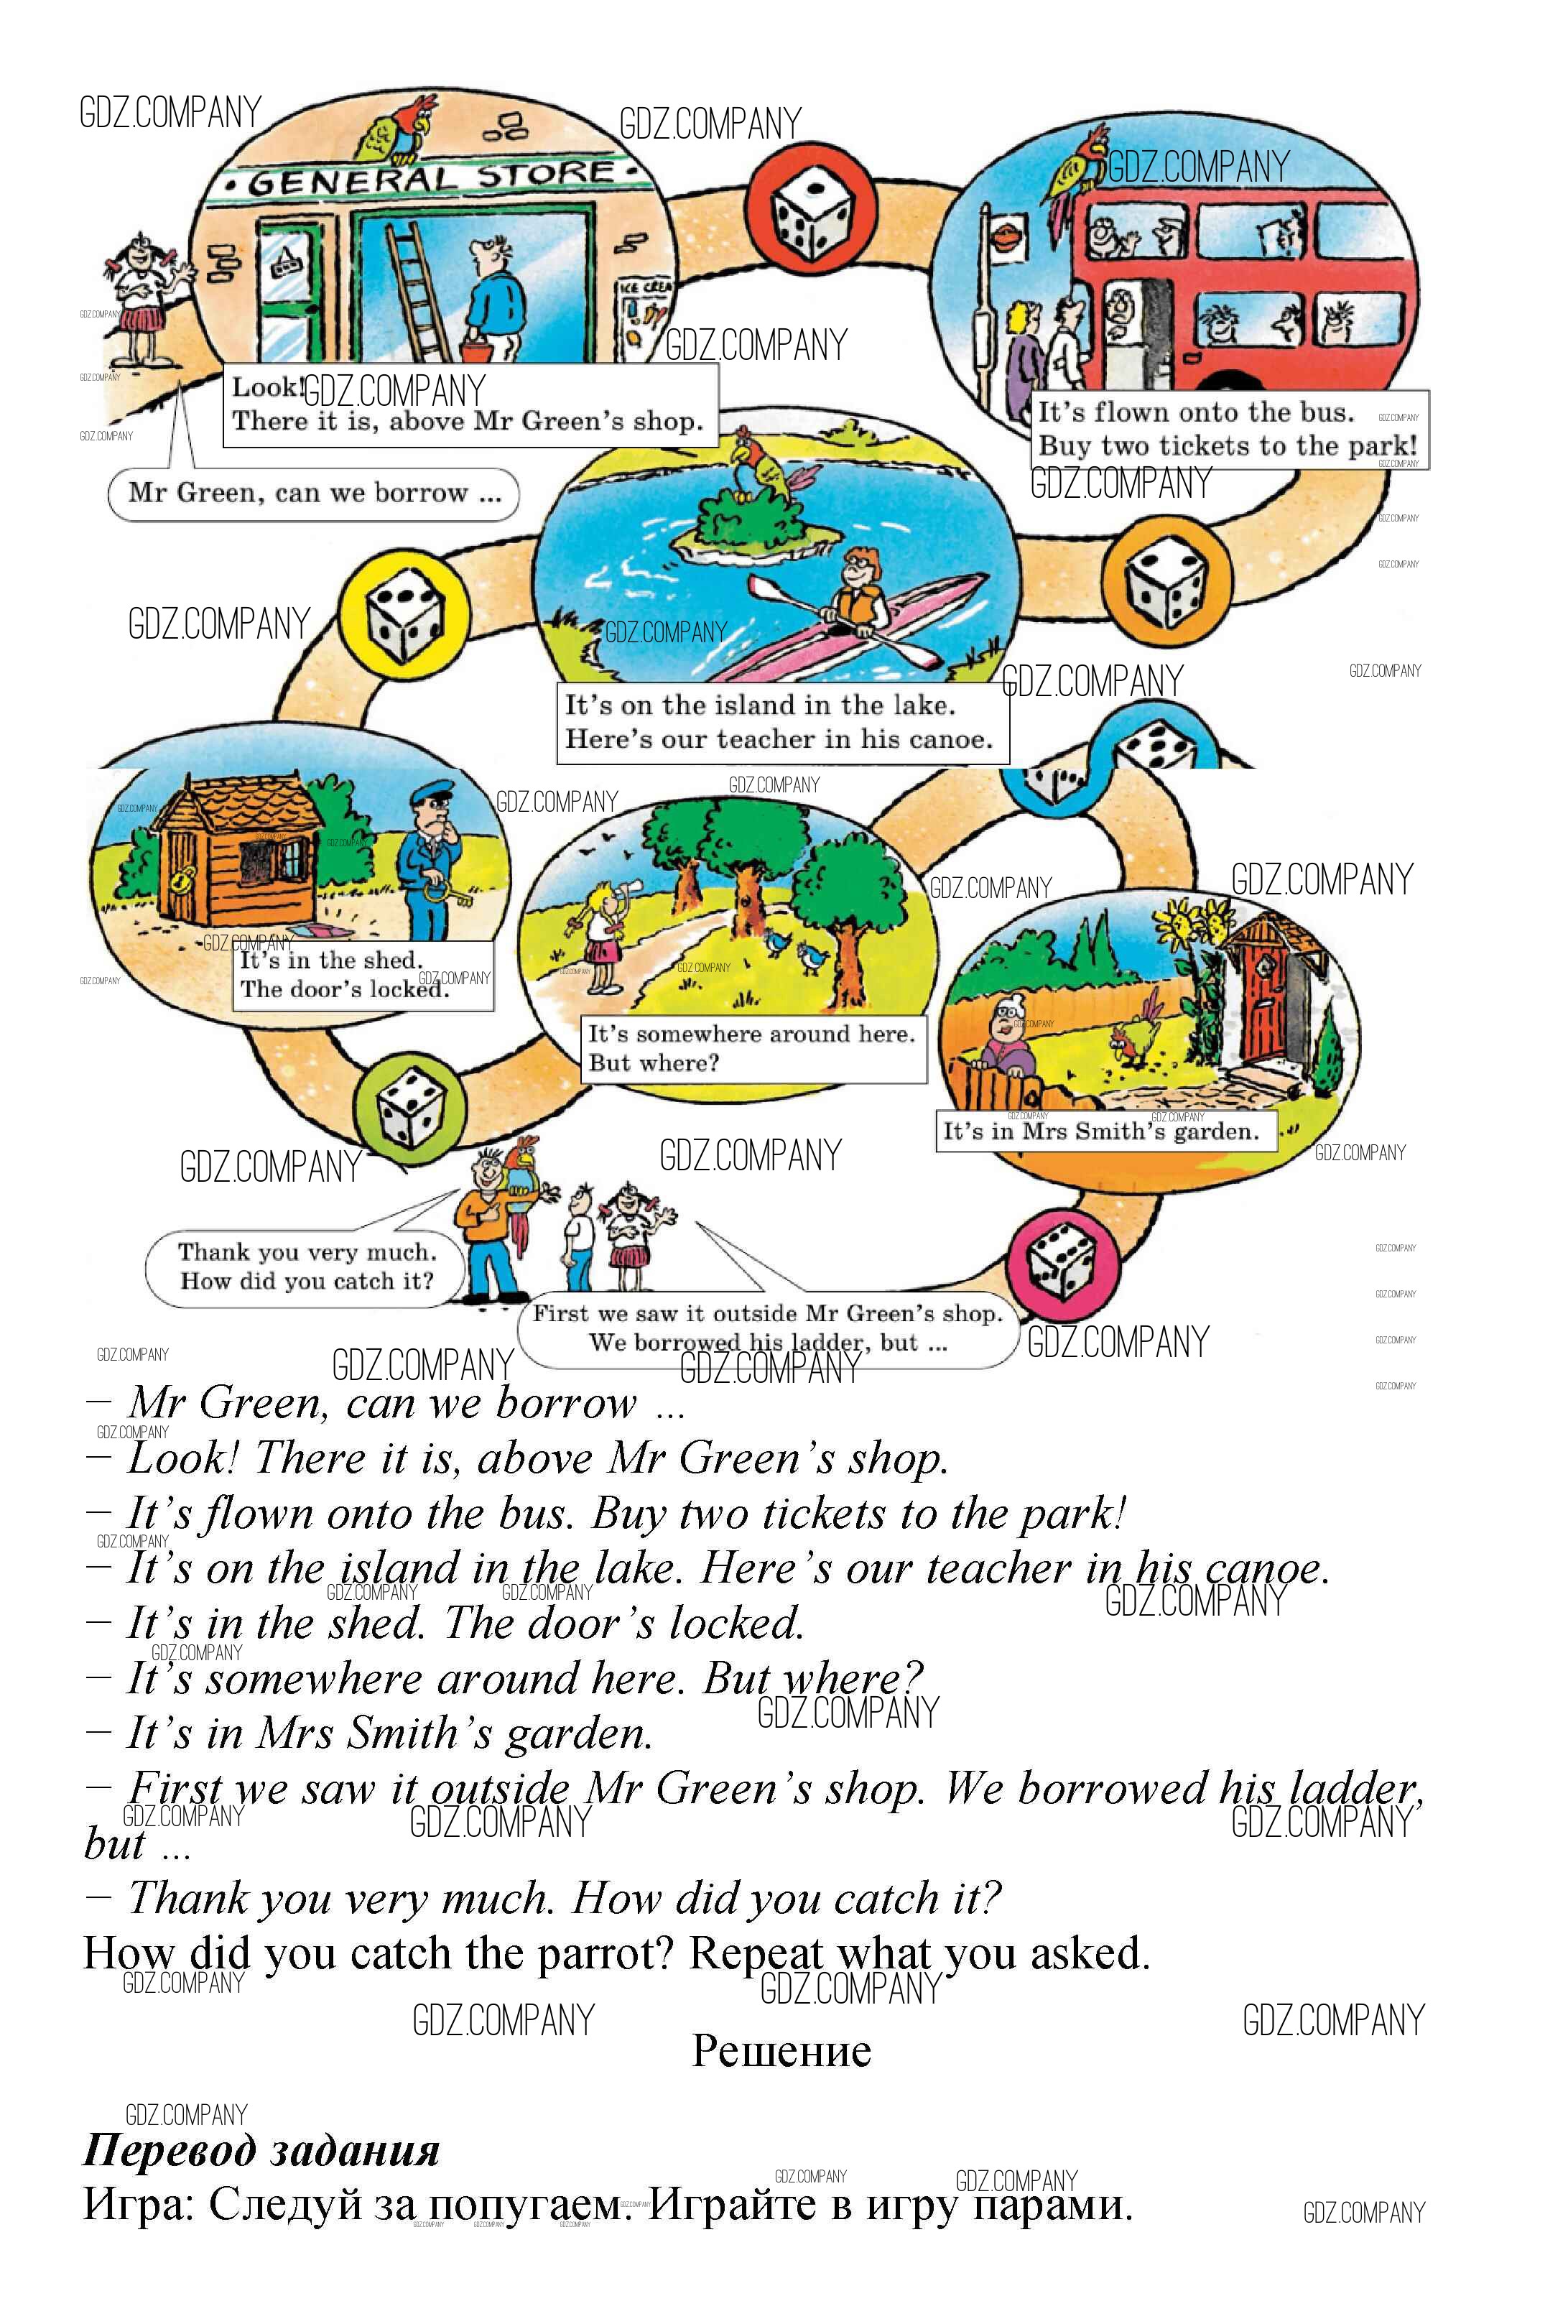 GENERAL STORE
ICE CREA
Look!
There it is, above Mr Green's shop.
Mr Green, can we borrow ...
It's flown onto the bus.
Buy two tickets to the park!
It's on the island in the lake.
Here's our teacher in his canoe.
It's in the shed.
The door's locked.
It's somewhere around here.
But where?
It's in Mrs Smith's garden.
Thank you very much.
How did you catch it?
First we saw it outside Mr Green's shop.
We borrowed his ladder, but ...
– Mr Green, can we borrow ...
– Look! There it is, above Mr Green's shop.
– It's flown onto the bus. Buy two tickets to the park!
– It's on the island in the lake. Here's our teacher in his canoe.
– It's in the shed. The door's locked.
– It's somewhere around here. But where?
– It's in Mrs Smith's garden.
– First we saw it outside Mr Green's shop. We borrowed his ladder,
but ...
– Thank you very much. How did you catch it?
How did you catch the parrot? Repeat what you asked.
Решение
Перевод задания
Игра: Следуй за попугаем. Играйте в игру парами.
GDZ.COMPANY